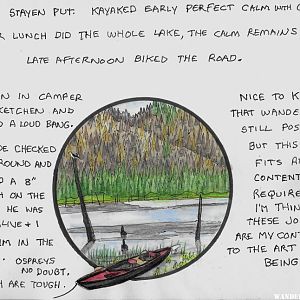 STAYEN PUT. KAYAKED EARLY PERFECT CALM WITH
LUNCH DID THE WHOLE LAKE, THE CALM REMAINS
LATE AFTERNOON BIKED THE ROAD.
IN CAMPER
KETCHEN AND
A LOUD BANG.
CHECKED
ROUND AND
A 8"
ON THE
HE WAS
LIVE & I
IN THE
OSPREYS
NO DOUBT,
ARE TOUGH.
NICE TO K
THAT WANDE
STILL POS
BUT THIS
FITS
CONTENT
REQUIRE
I'M THIN
THESE JO
ARE MY CON
TO THE ART
BEING
WANDE